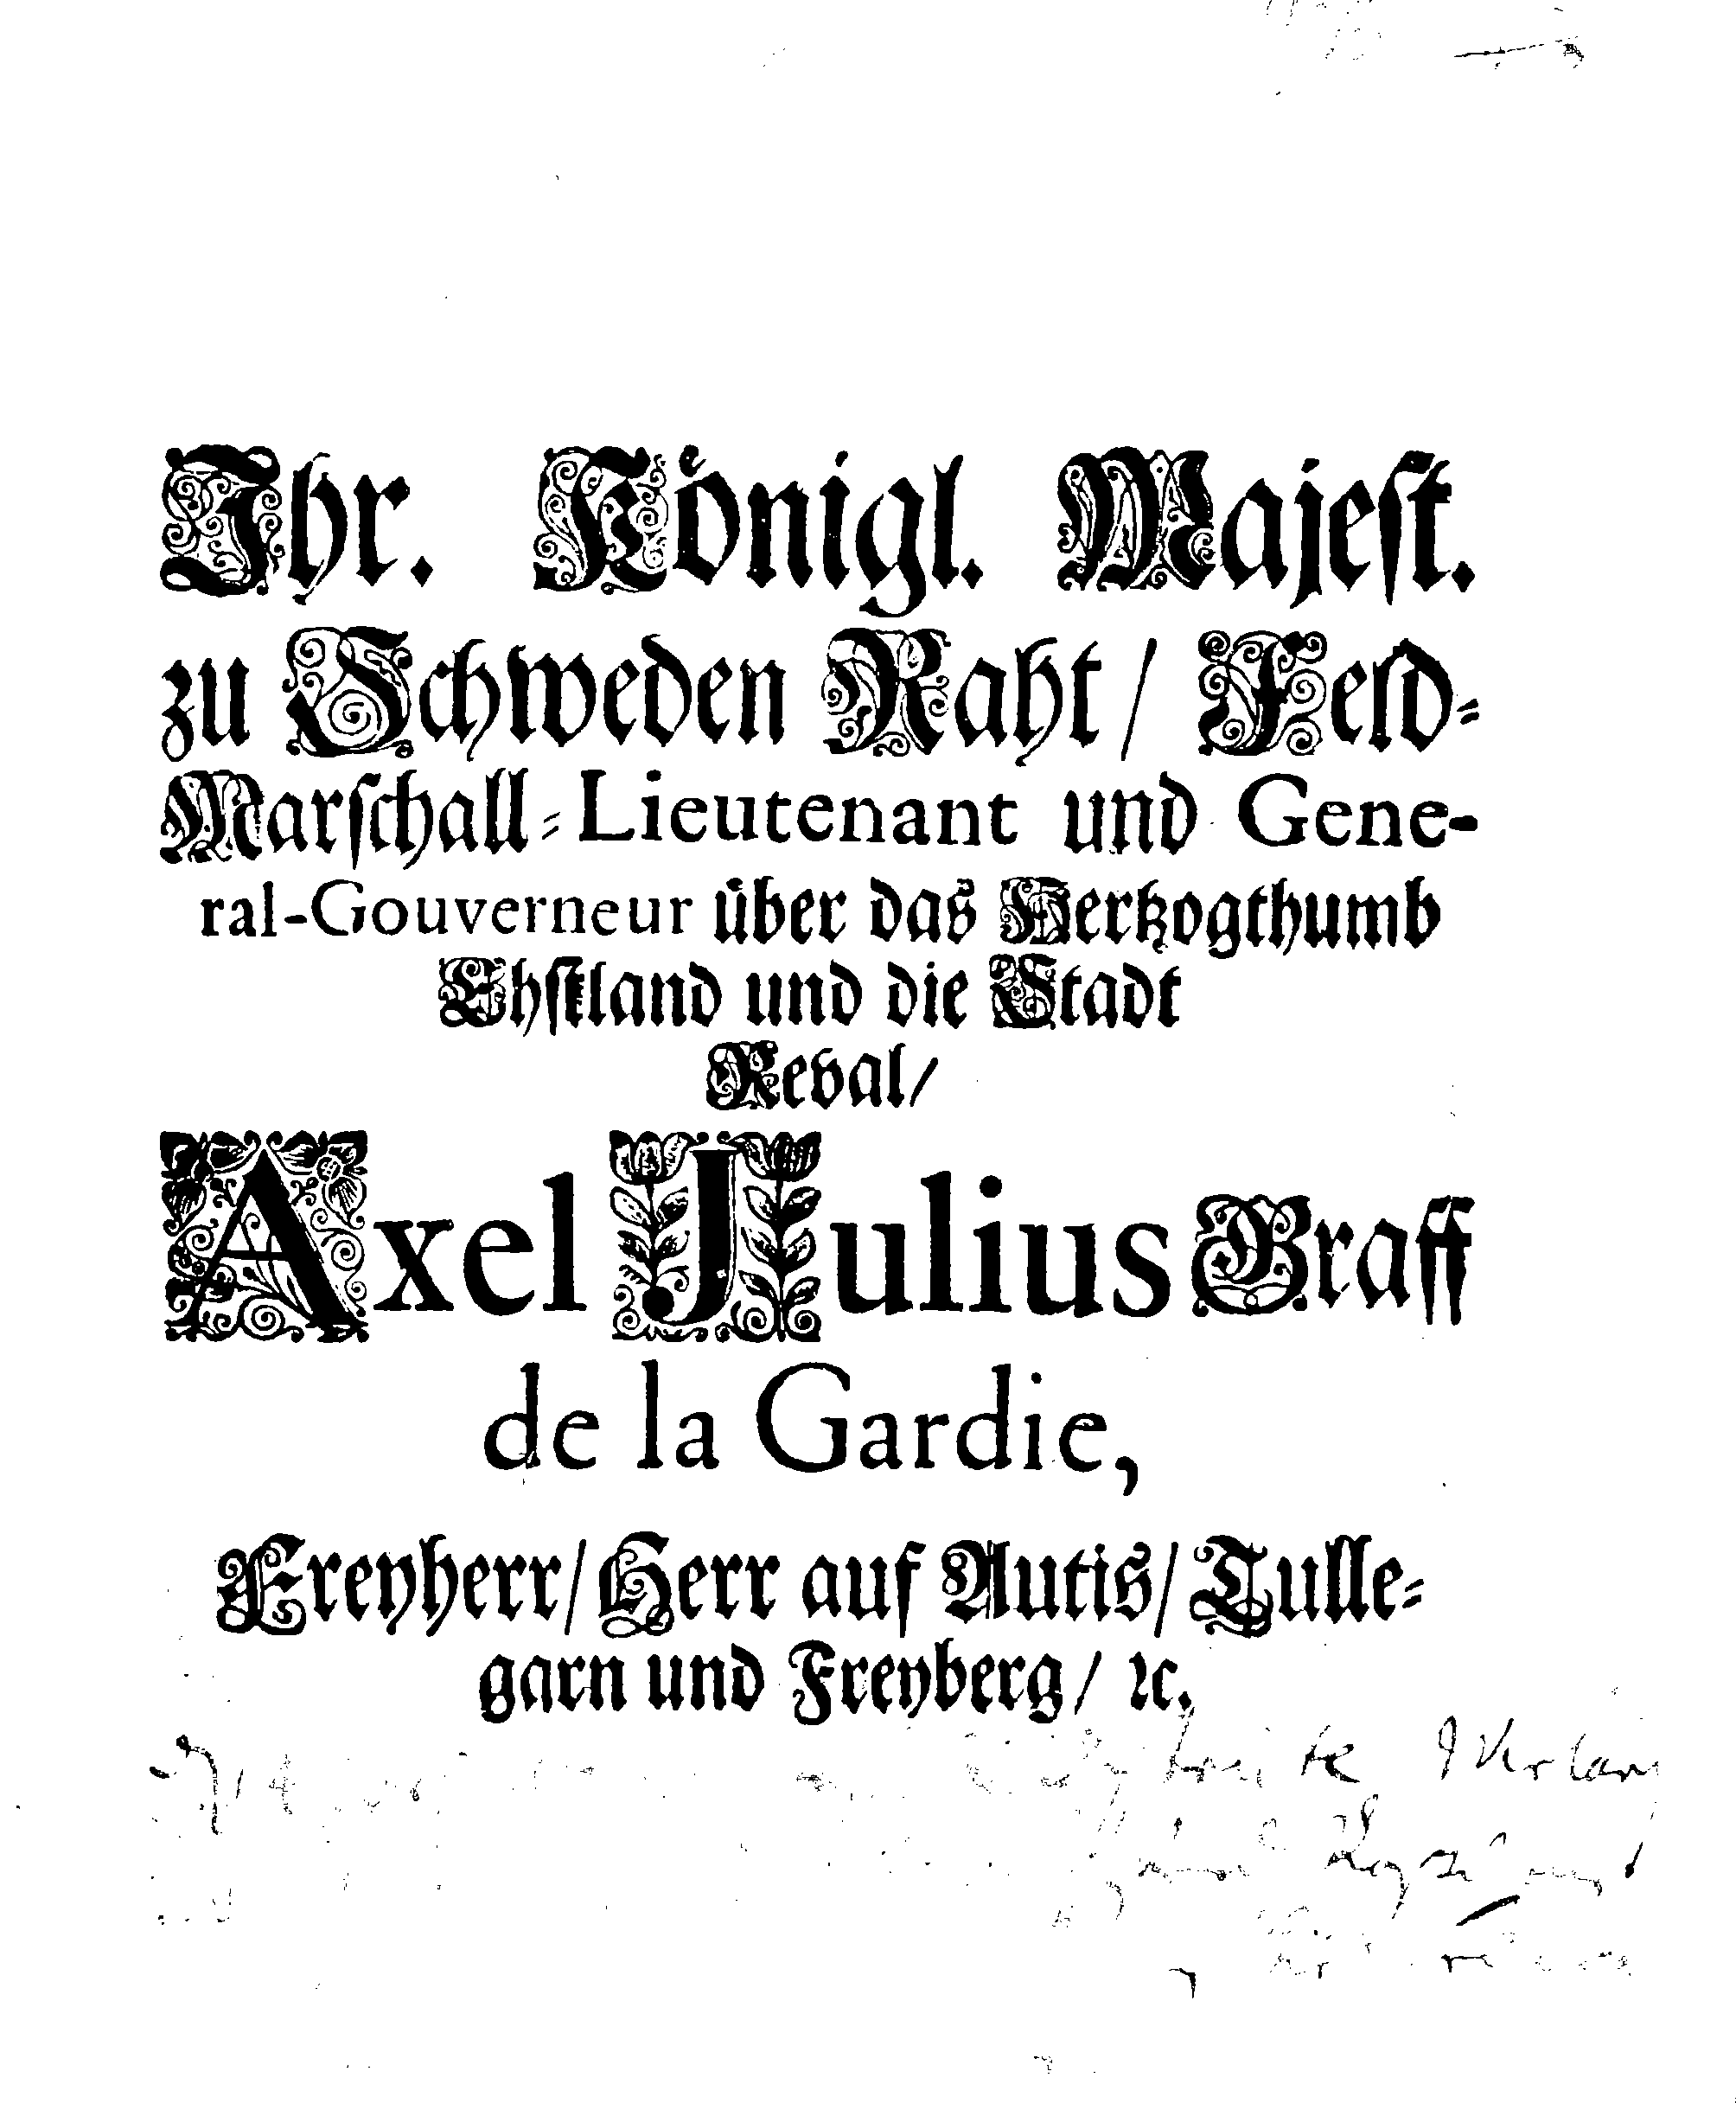 Ihr. Königl. Majest.
zu Schweden Raht / Feld-
Marschall-Lieutenant und Gene-
ral-Gouverneur über das Hertzogthumb
Ehstland und die Stadt
Reval /
Axel Julius Graff
de la Gardie,
Freyherr / Herr auf Autis / Tulle-
garn und Freyberg / ꝛc.